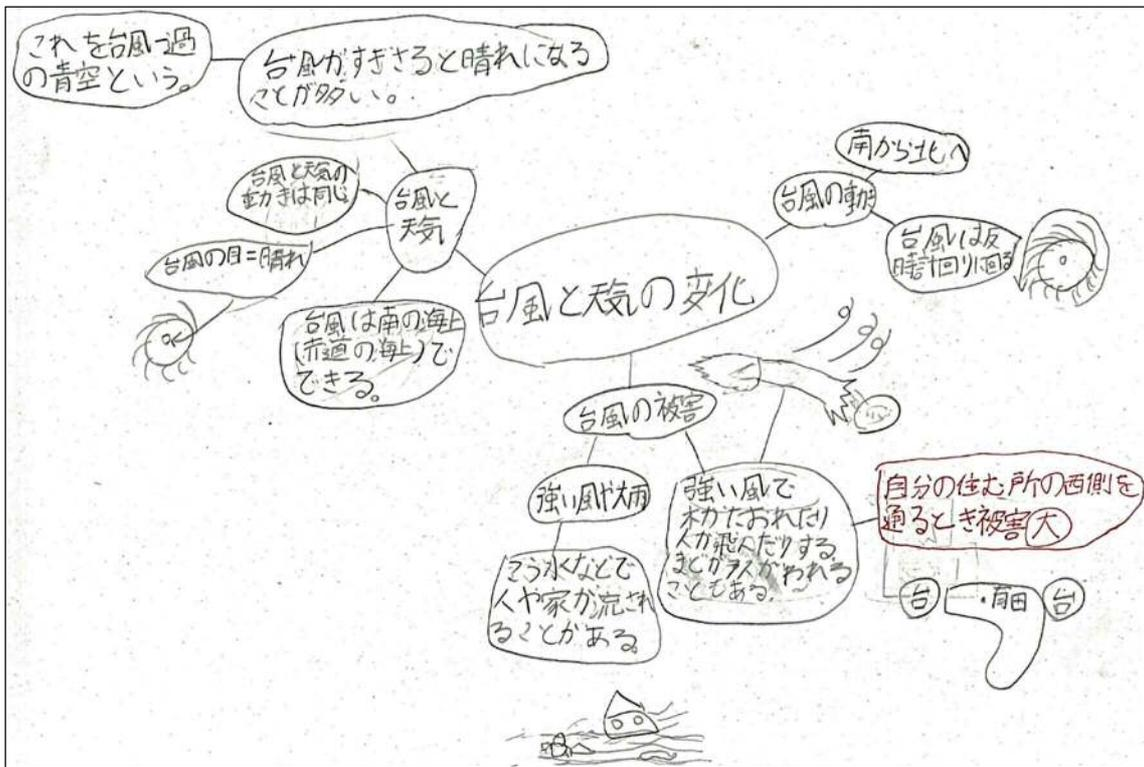 これを台風一過
の青空という。
台風がすぎさると晴れになる
ことが多い。
台風と天気の
動きは同じ
台風と
天気
台風の目=晴れ
台風は南の海上
(赤道の海上)で
できる。
台風と天気の変化
南から北へ
台風の動き
台風は反
時計回りに回る
台風の被害
強い風や大雨
こう水などで
人や家が流され
ることがある
強い風で
木がたおれたり
人が飛んだりする
まどガラスがわれる
こともある。
自分の住む所の西側を
通るとき被害大
台
・有田
台